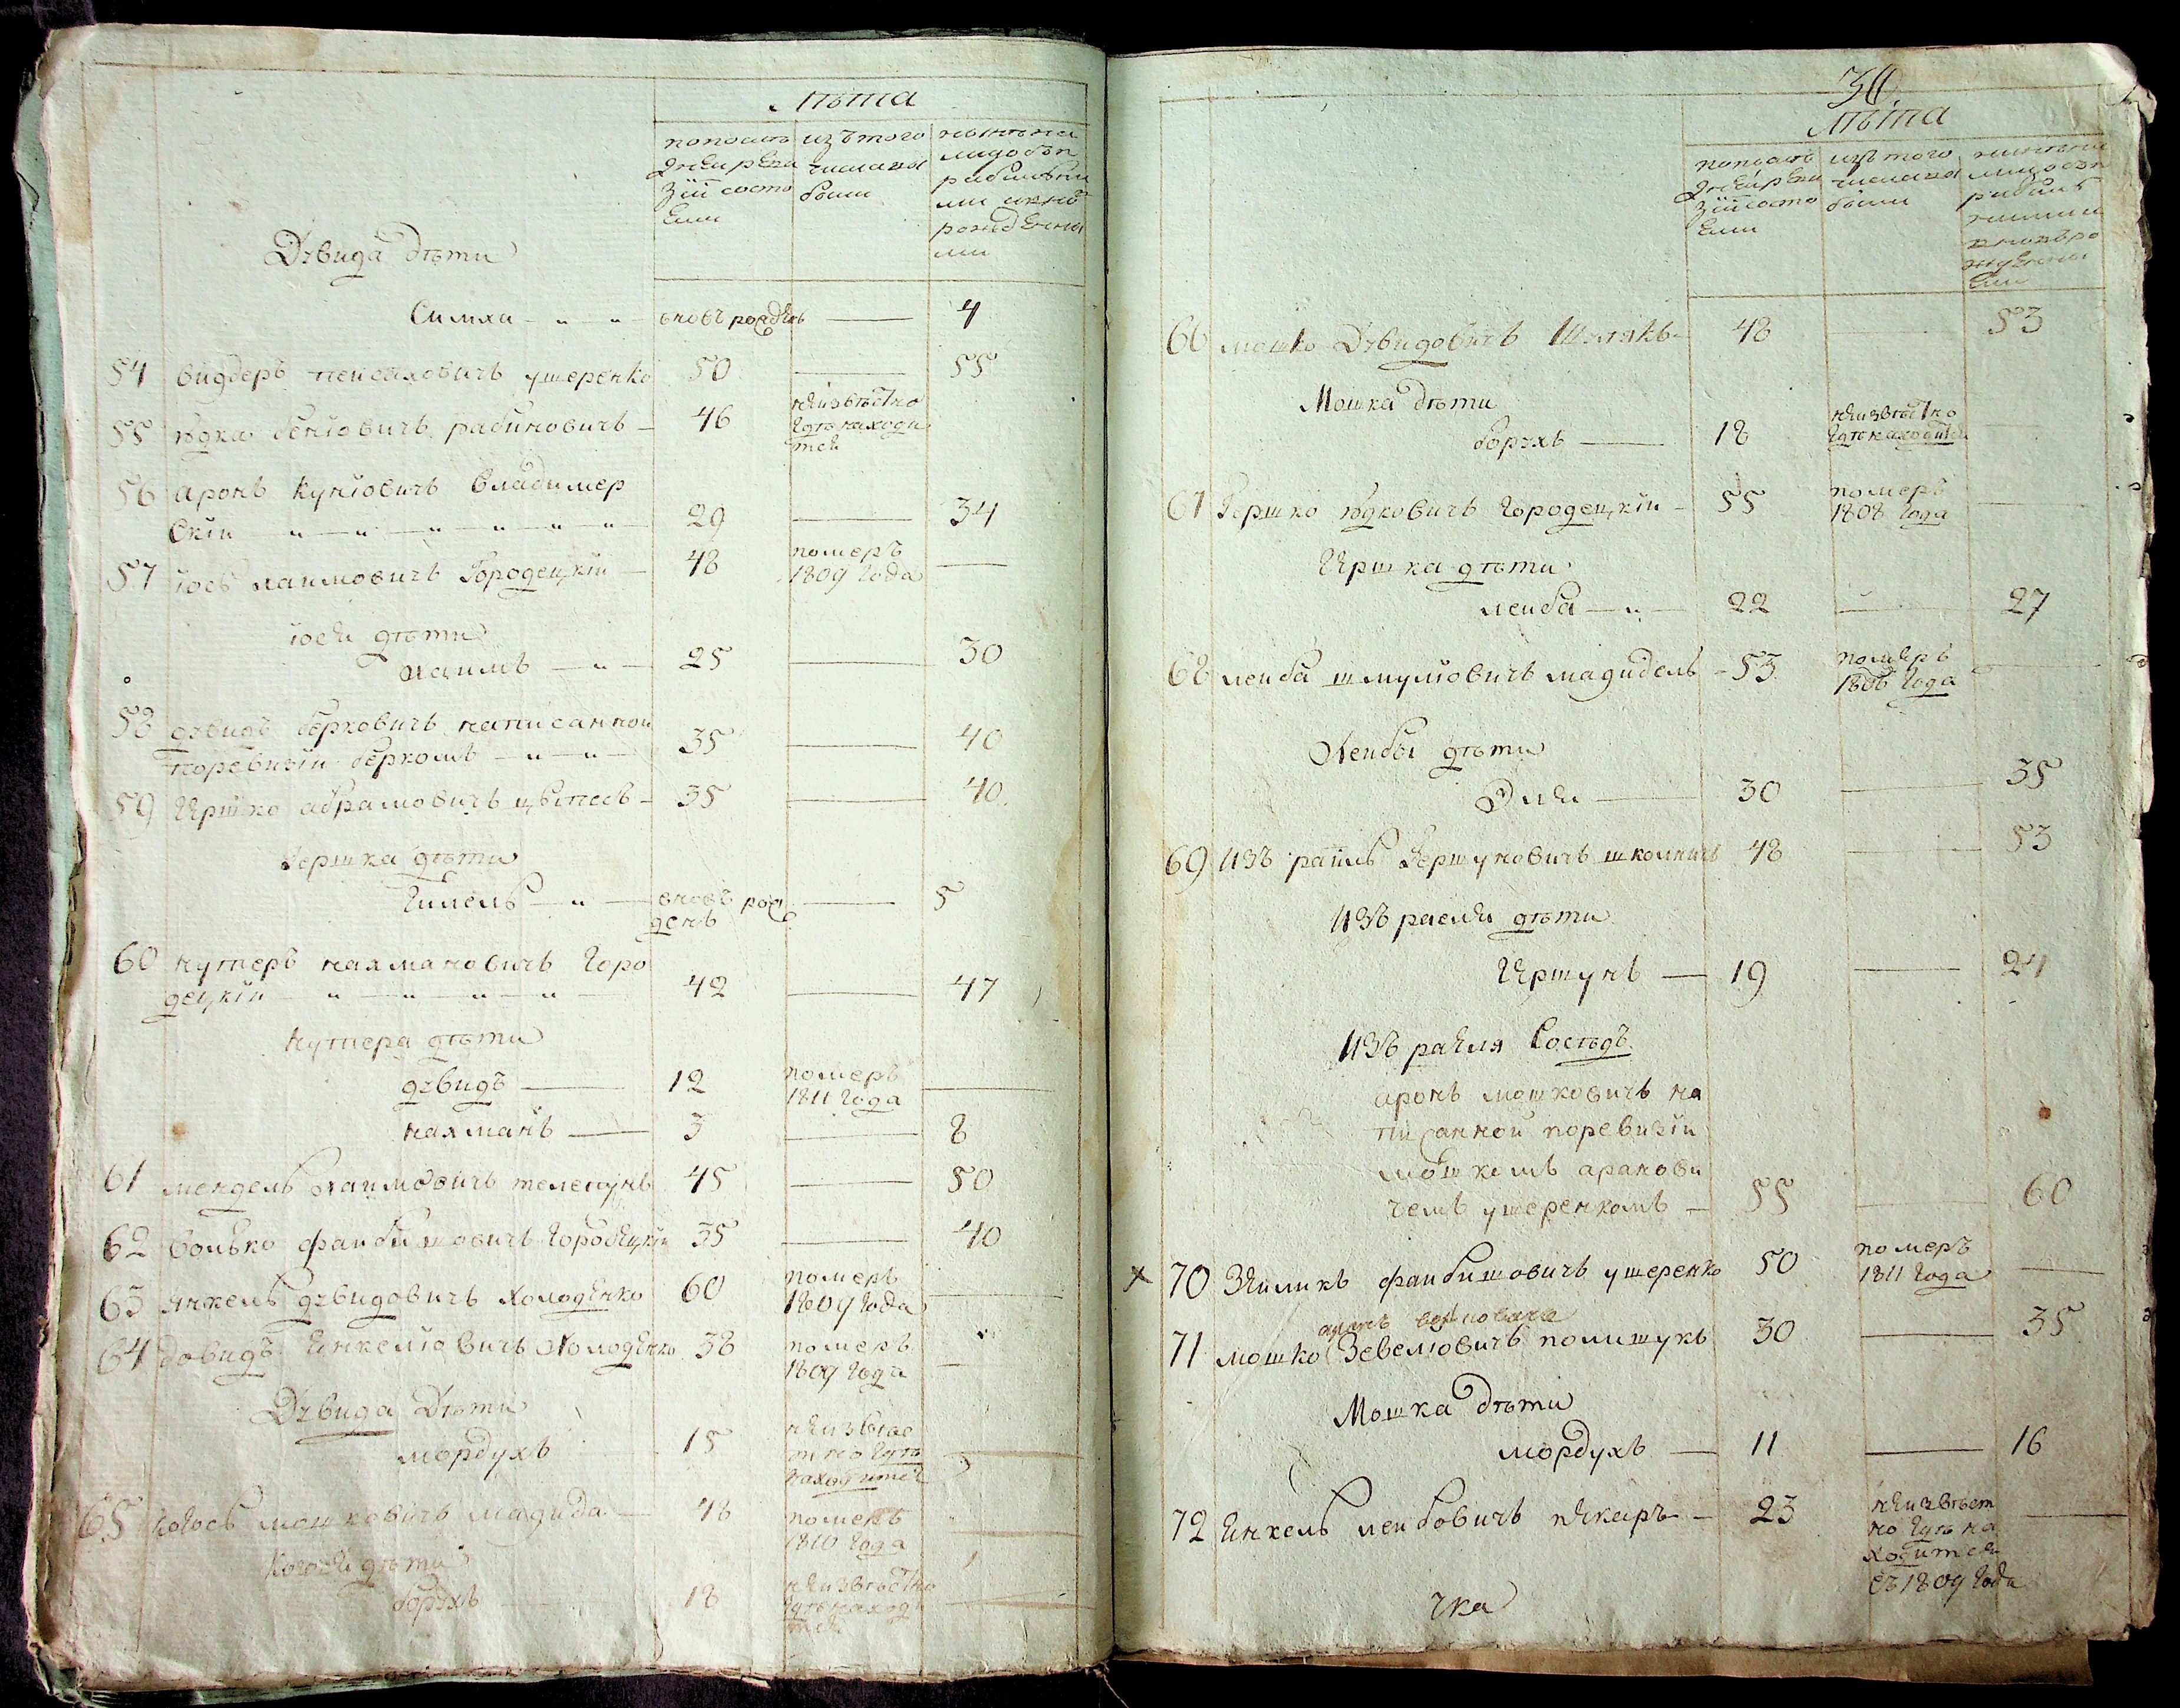 Лѣта
попослѣ
дней реви
зіи состо
яли
изъ того
числа вы
были
нынѣ на
лицо съ п
рибылы
ми и но
рожденны
ми
Дувида дѣти
Симха вновь рожденъ — 4
54 видеръ пейсаховичъ ушеренко 50 — 55
55 юдка беніовичъ рабиновичъ 46 неизвѣстно
гдѣ находи
тся
56 аронъ куніовичъ владимер
скіи 29 — 34
57 іосъ хаимовичъ Городецкіи 48 померъ
1809 Года —
іося дѣти
хаимъ 25 — 30
58 дувидъ берковичъ написанной
поревизіи беркомъ 35 — 40
59 Гершко абрамовичъ 35 — 40
Гершка дѣти
Гимель вновь рож
денъ — 5
60 нутеръ нахмановичъ Горо
децкіи 42 — 47
нутера дѣти
дувидъ 12 померъ
1811 Года —
нахманъ 3 — 8
61 мендель хаимовичъ телепунъ 45 — 50
62 волько файбишовичъ Городецкіи 35 — 40
63 янкель дувидовичъ холоденко 60 померъ
1809 Года —
64 довидъ Янкеліовичъ холоденко 38 померъ
1809 Года —
Дувида Дѣти
мордухъ 15 неизвѣс
тно Гдѣ
находится
65 мошковичъ магида 48 померъ
1810 Года
дѣти
борухъ 18 неизвѣстно
гдѣ находи
тся
30
Лѣта
попослѣ
дней реви
зіи состо
яли
изъ того
числа вы
были
нынѣ на
лицо съ п
рибылы
ми и
вновь ро
жденны
ми
66 мошко Дувидовичъ 48 — 53
Мошка дѣти
борухъ 18 неизвѣстно
Гдѣ находится
67 Гершко юдковичъ Городецкіи 55 померъ
1808 Года —
Гершка дѣти
леиба 22 — 27
68 леиба шмуліовичъ магидель 53 померъ
1808 Года —
Леибы дѣти
Элия 30 — 35
69 изъ раиль Гершуновичъ школникъ 48 — 53
изъ раеля дѣти
Гершунъ 19 — 24
изъ раеля Сосѣдъ
аронъ мошковичъ на
писанной поревизіи
мошкомъ аранови
чемъ ушеренкомъ 55 — 60
х 70 Зеиликъ файбишовичъ ушеренко 50 померъ
1811 Года —
71 мошко Зевеліовичъ полишукъ 30 — 35
Мошка дѣти
мордухъ 11 — 16
72 Янкель леибовичъ пекаръ 23 неизвѣст
но Гдѣ на
ходится
съ 1809 Года
чка